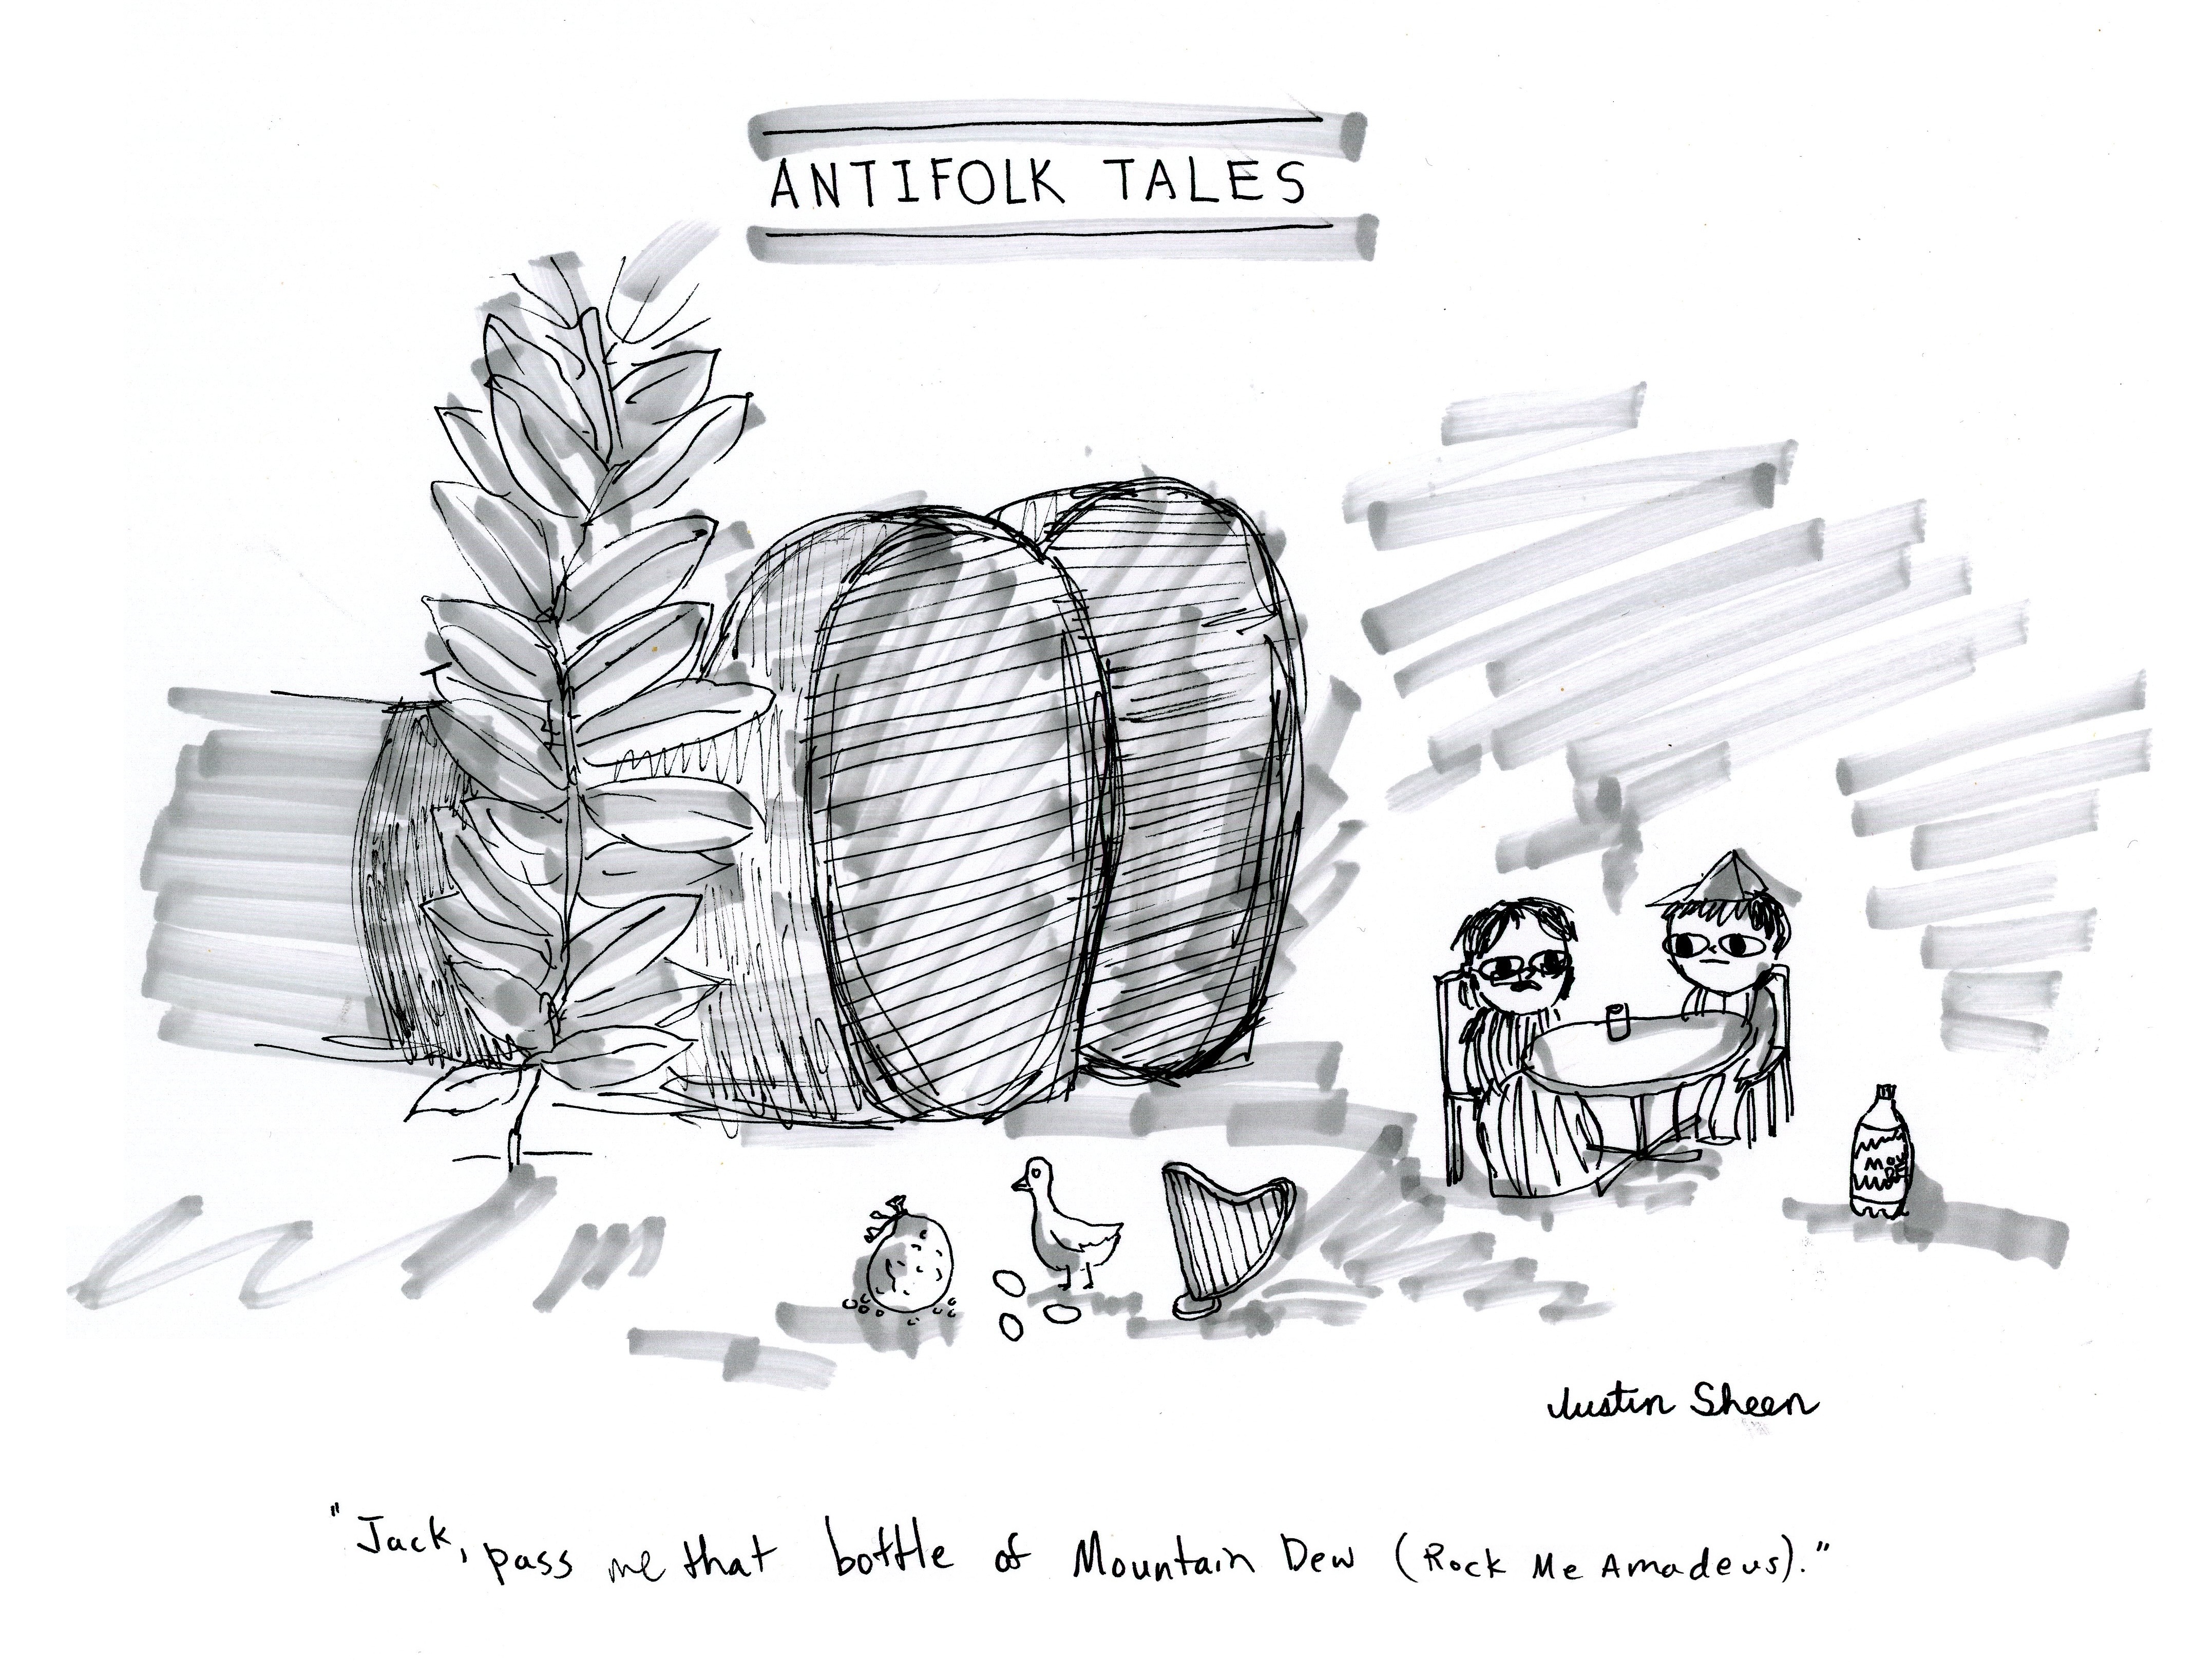 ANTIFOLK TALES
Justin Sheen
"Jack, pass me that bottle of Mountain Dew (Rock Me Amadeus)."